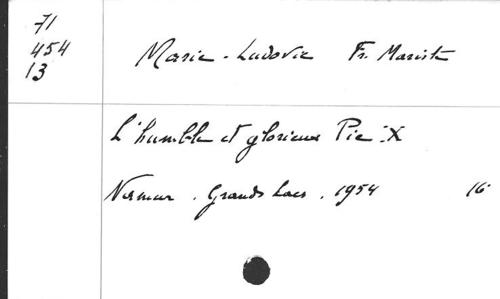 71
454
13
Marie-Ludovic Fr. Mariste
L'humble et glorieux Pie X
Namur. Grands Lacs. 1954 16°